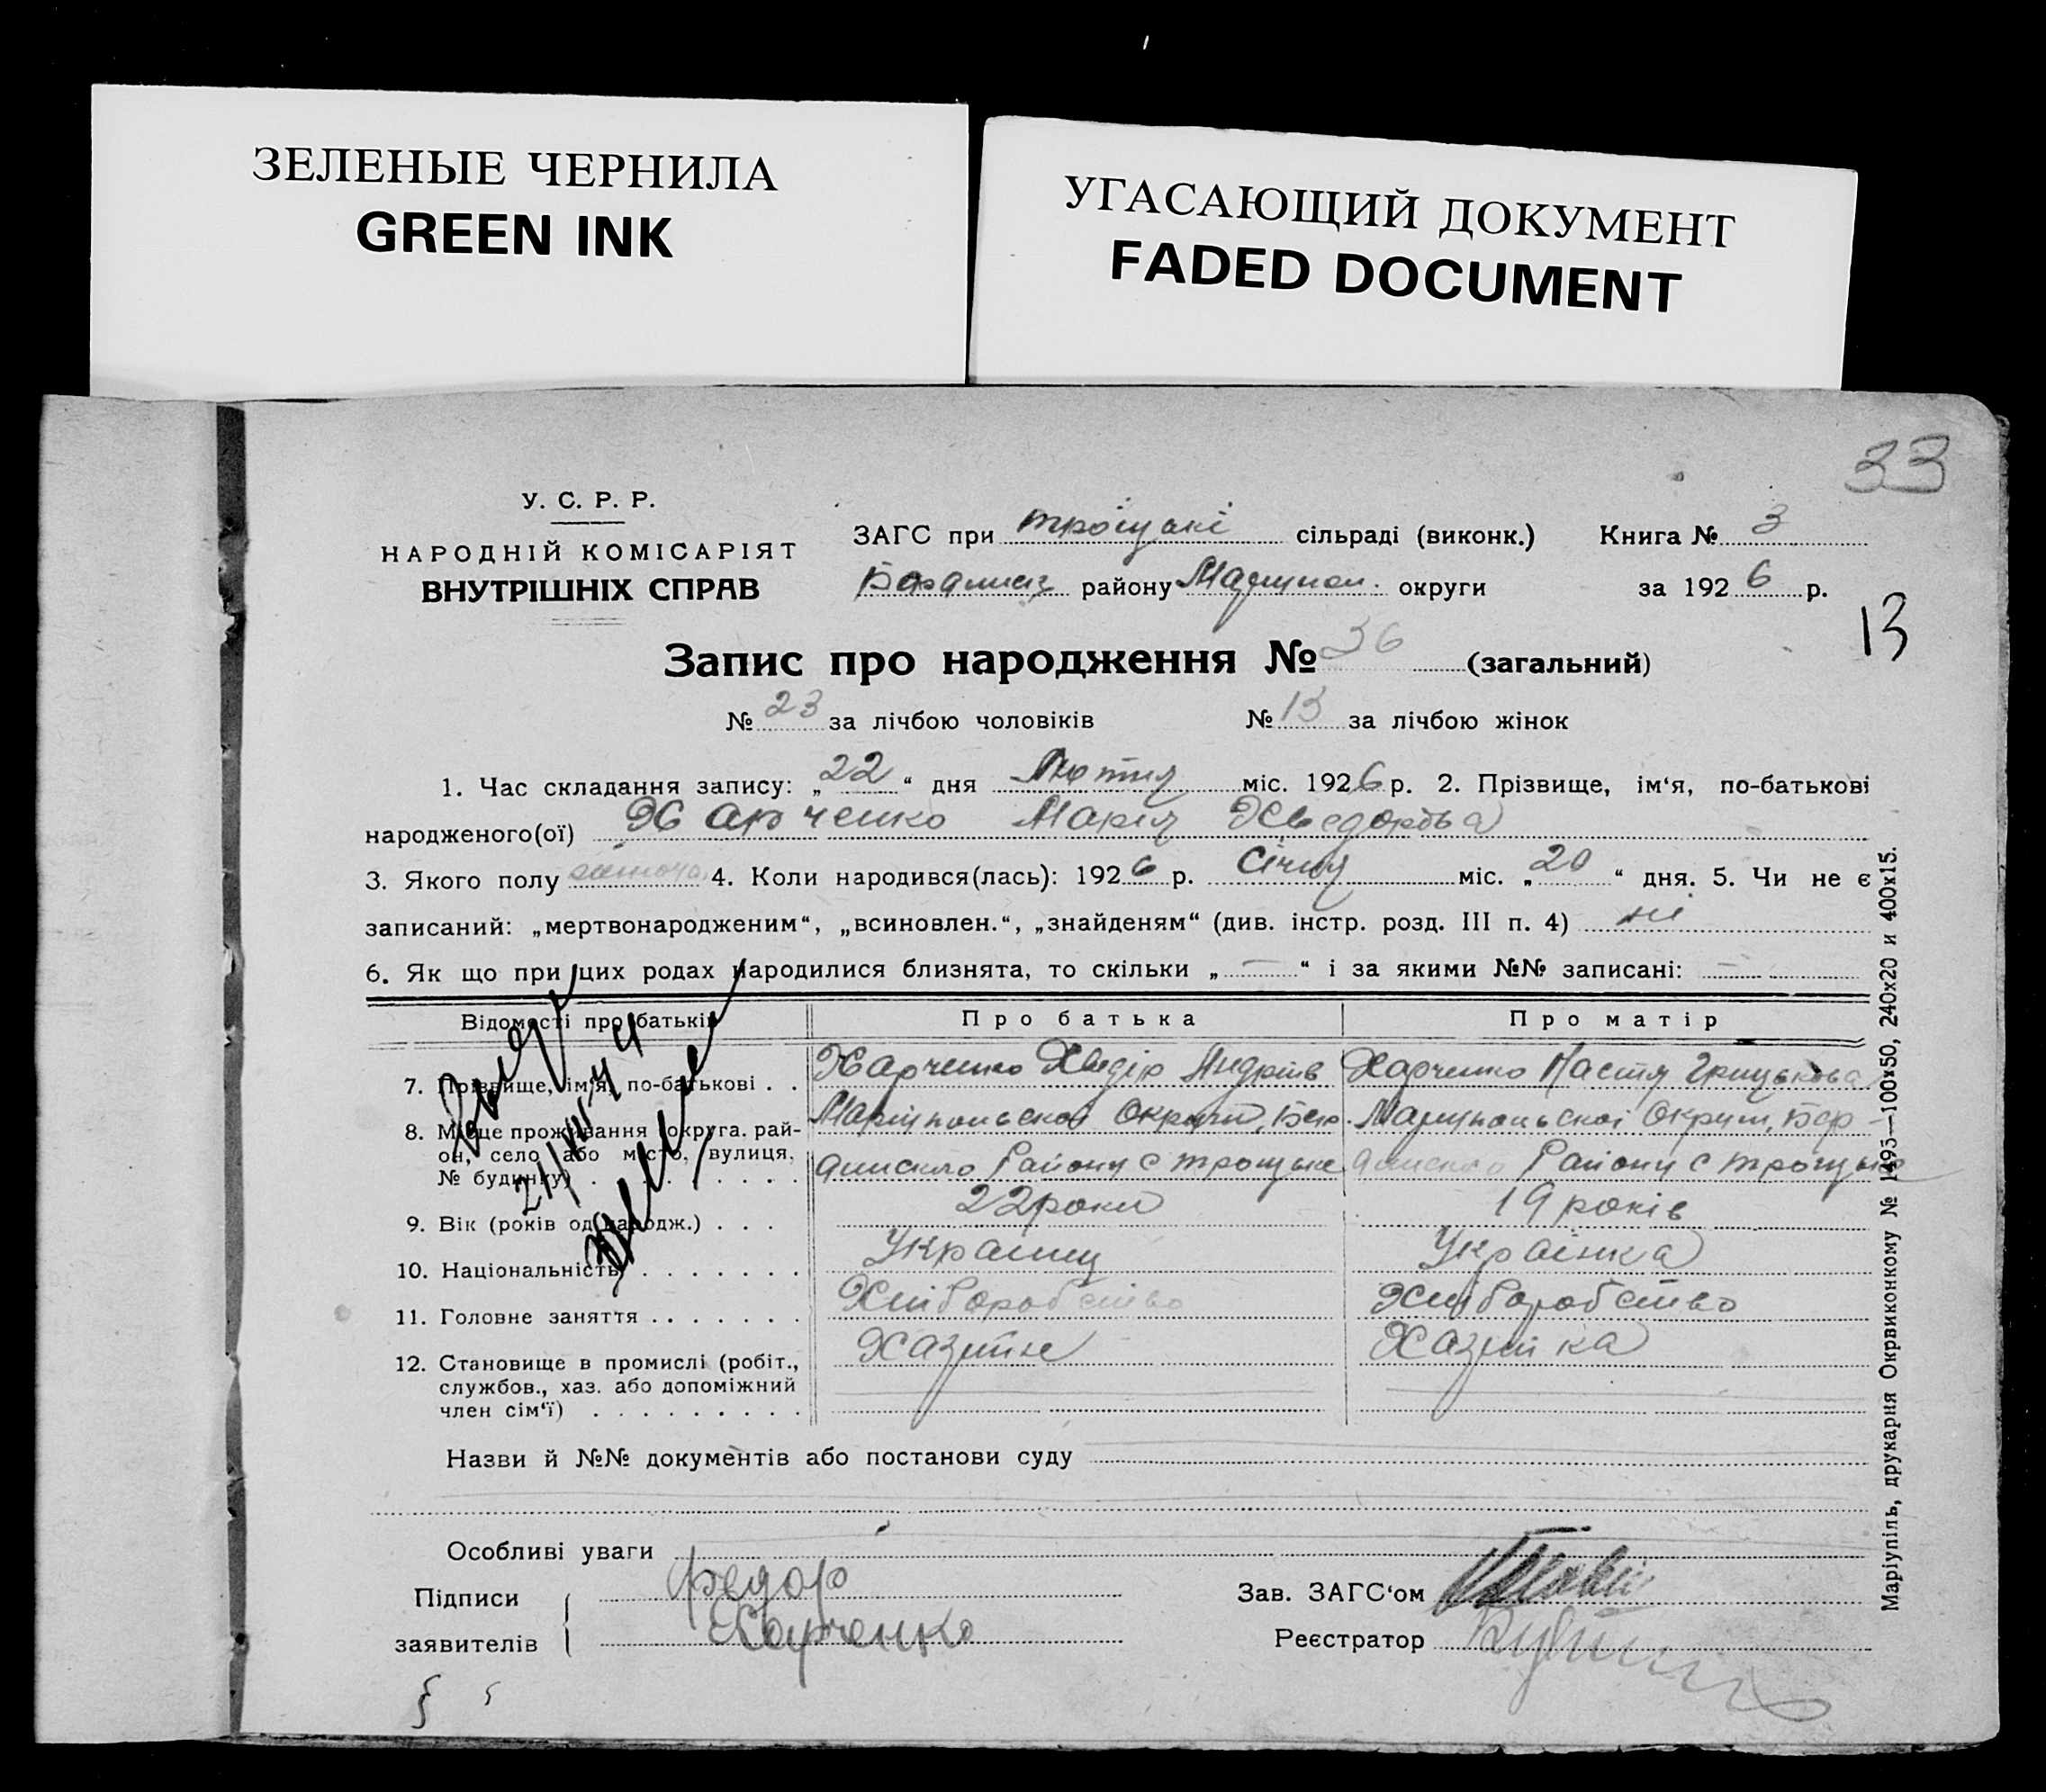 ЗЕЛЕНЫЕ ЧЕРНИЛА
GREEN INK
УГАСАЮЩИЙ ДОКУМЕНТ
FADED DOCUMENT
33
У. С. Р. Р.
НАРОДНІЙ КОМІСАРІЯТ
ВНУТРІШНІХ СПРАВ
ЗАГС при сільраді (виконк.) Книга № 3
району Маріупол. округи за 1926 р.
13
Запис про народження № 36 (загальний)
№ 23 за лічбою чоловіків № 13 за лічбою жінок
1. Час складання запису: „22“ дня Лютня міс. 1926 р. 2. Прізвище, ім‘я, по-батькові
народженого(ої) Харченко Марія Хведорова
3. Якого полу жіночо 4. Коли народився(лась): 1926 р. Січня міс. „20“ дня. 5. Чи не є
записаний: „мертвонародженим“, „всиновлен.“, „знайденям“ (див. інстр. розд. III п. 4) ні
6. Як що при цих родах народилися близнята, то скільки „—“ і за якими №№ записані: —
Відомості про батьків Про батька Про матір
7. Прізвище, ім‘я, по-батькові . . Харченко Хведір Андріїв Харченко Настя Грицькова
8. Місце проживання (округа, рай- Маріупольскої Округи, Маріупольскої Округи,
он, село або місто, вулиця, Району с Району с
№ будинку)
9. Вік (років од народж.) . . . 22 роки 19 років
10. Національність . . . . . . . Українец Українка
11. Головне заняття . . . . . . . Хліборобство Хліборобство
12. Становище в промислі (робіт., Хазяїн Хазяйка
службов., хаз. або допоміжний
член сім‘ї) . . . . . . . . .
Назви й №№ документів або постанови суду
Особливі уваги
Підписи Федор Зав. ЗАГС‘ом
заявителів Харченко Реєстратор
Маріупіль, друкарня Окрвиконкому № 1495—100х50, 240х20 и 400х15.